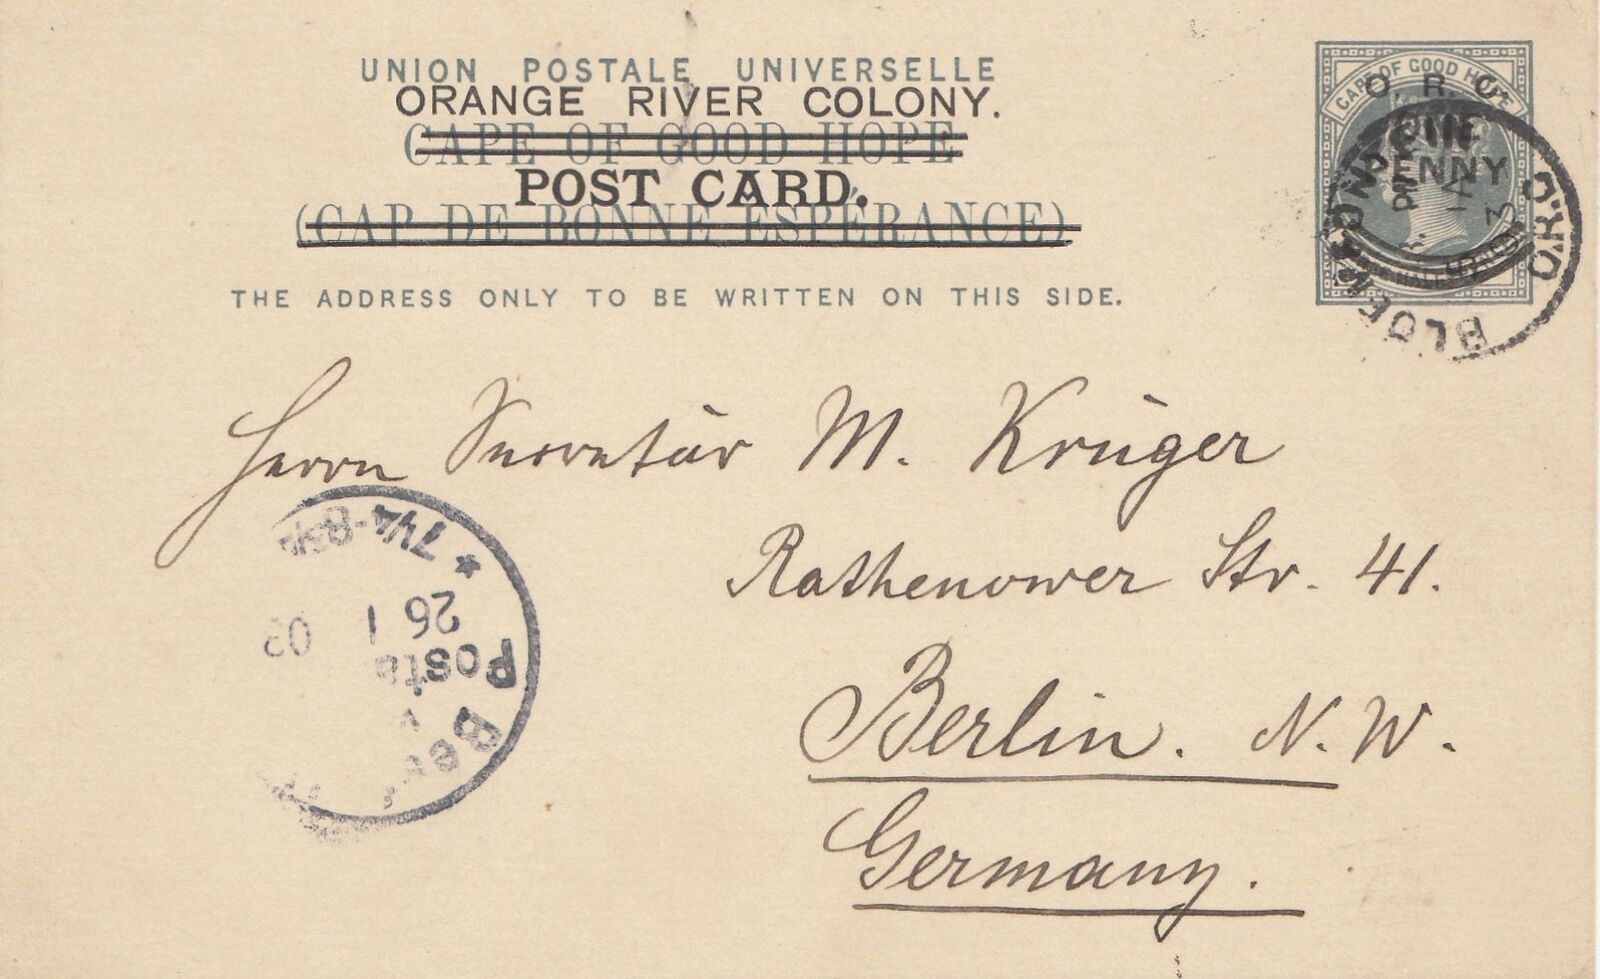 UNION POSTALE UNIVERSELLE
ORANGE RIVER COLONY.
CAPE OF GOOD HOPE
POST CARD.
(CAP DE BONNE ESPÉRANCE)
THE ADDRESS ONLY TO BE WRITTEN ON THIS SIDE.
CAPE OF GOOD HOPE
O. R. C.
ONE
PENNY
O.R.C.
Herrn Secretär M. Krüger
Rathenower Str. 41.
Berlin. N. W.
Germany.
26 1 03